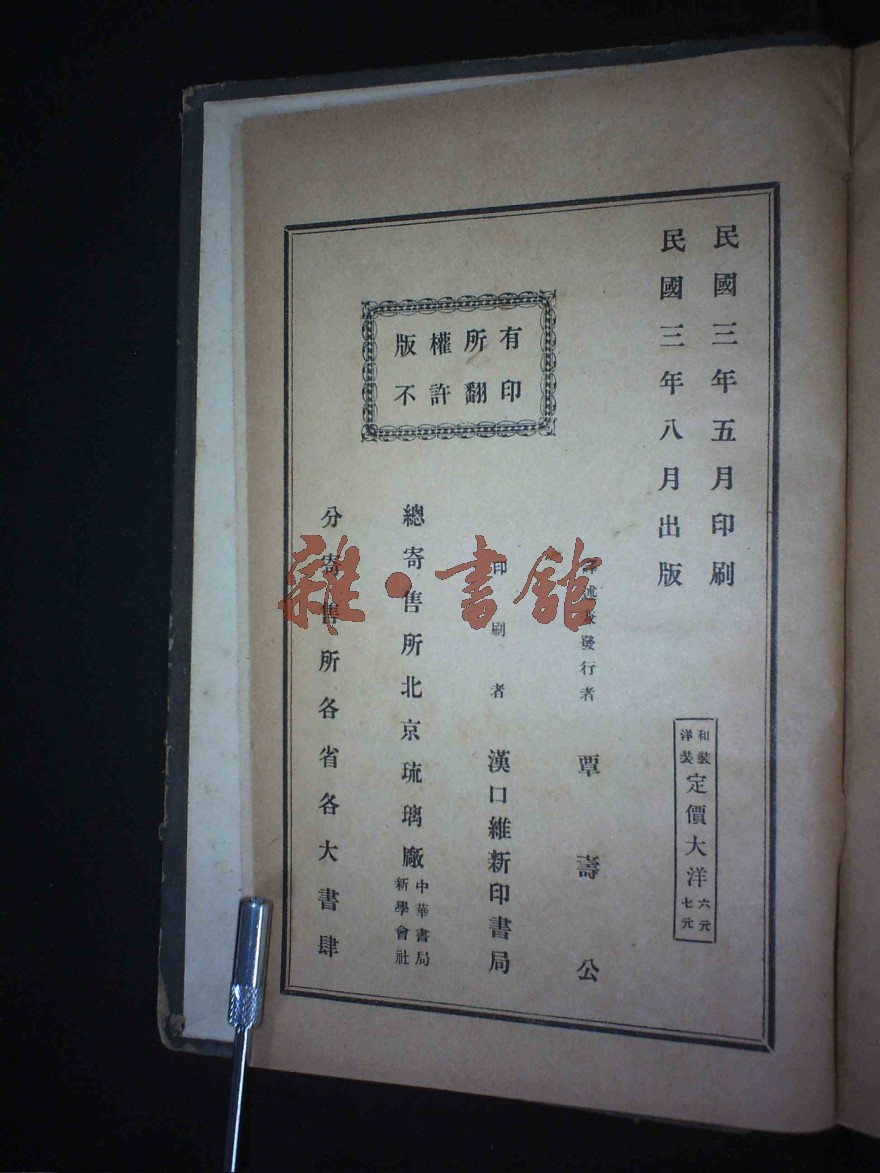 民國三年五月印刷
民國三年八月出版
和裝
洋裝
定價大洋
六元
七元
版權所有
不許翻印
譯述及發行者 覃壽公
印刷者 漢口維新印書局
總寄售所北京琉璃廠
中華書局
新學會社
分寄售所各省各大書肆
雜·書館